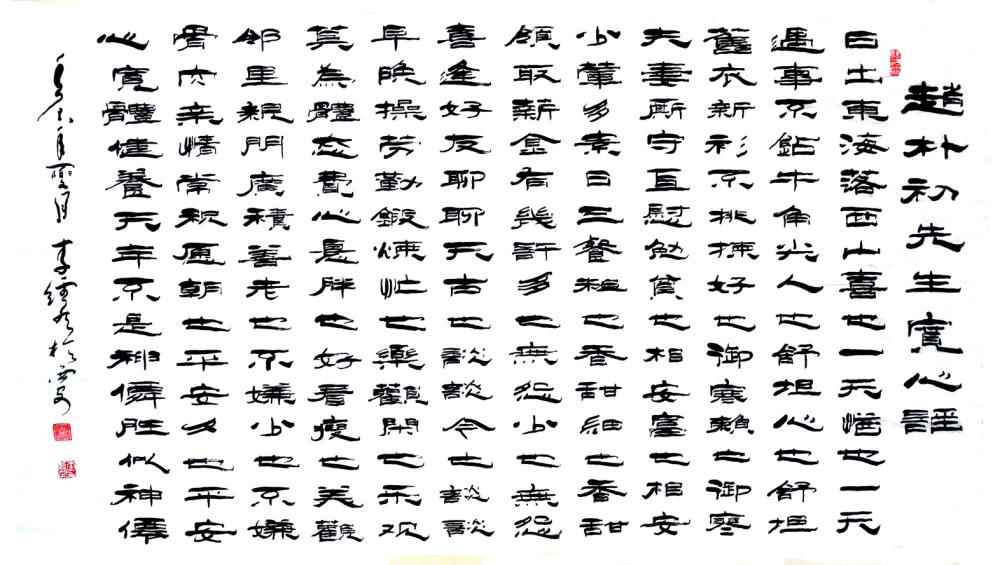 趙朴初先生寬心謠
日出東海落西山喜也一天愁也一天
遇事不鉆牛角尖人也舒坦心也舒坦
舊衣新衫不挑揀好也御寒賴也御寒
夫妻厮守互慰勉貧也相安富也相安
少葷多素日三餐粗也香甜細也香甜
領取薪金有幾許多也無怨少也無怨
喜逢好友聊聊天古也談談今也談談
早晚操劳勤鍛煉忙也樂觀閑也乐观
莫為體态費心思胖也好看瘦也美觀
邻里親門廣積善老也不嫌少也不嫌
骨肉亲情常祝愿朝也平安夕也平安
心寬體健養天年不是神僊胜似神僊